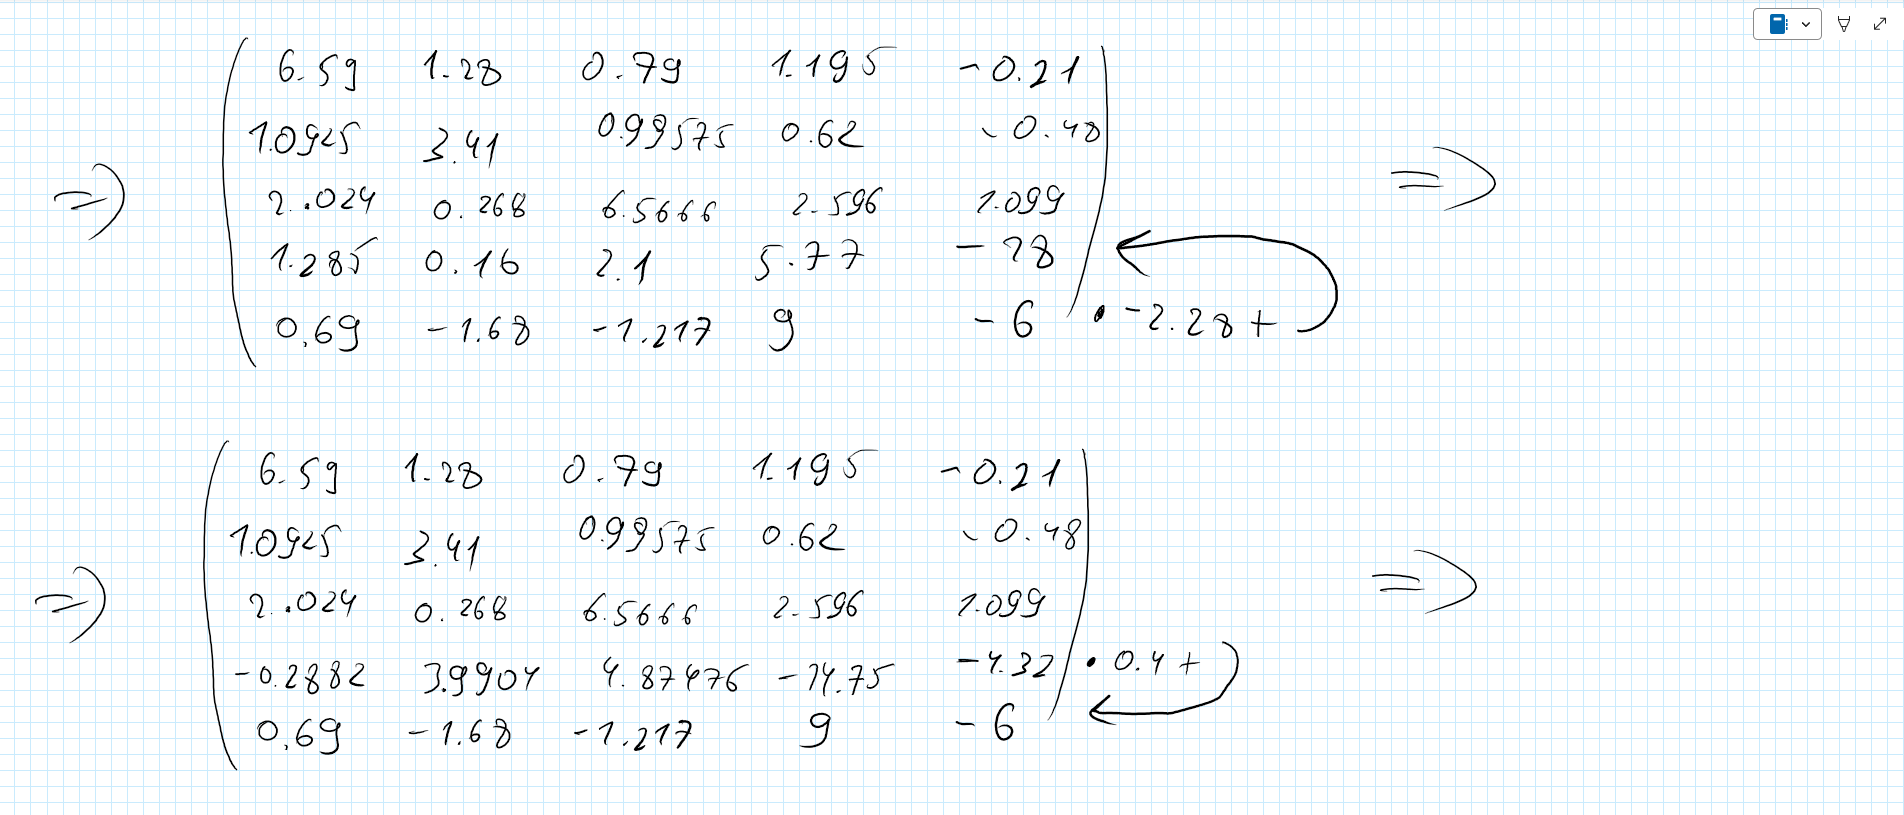 6.59 1.28 0.79 1.195 -0.21
1.0925 3.41 0.99575 0.62 -0.48
=> 2.024 0.268 6.5666 2.596 1.099 =>
1.285 0.16 2.1 5.77 -28
0.69 -1.68 -1.217 9 -6 • -2.28 +
6.59 1.28 0.79 1.195 -0.21
1.0925 3.41 0.99575 0.62 -0.48
=> 2.024 0.268 6.5666 2.596 1.099 =>
-0.2882 3.9904 4.87476 -14.75 -4.32 • 0.4 +
0.69 -1.68 -1.217 9 -6